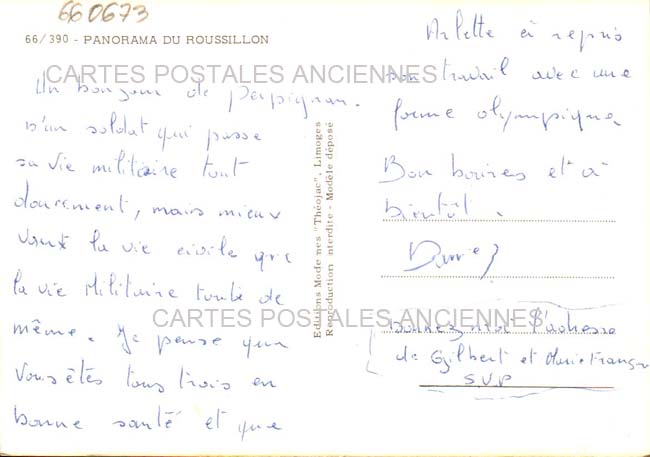 660673
66/390 - PANORAMA DU ROUSSILLON
CARTES POSTALES ANCIENNES
Un bonjour de perpignan.
D'un soldat qui passe
sa vie militaire tout
doucement, mais mieux
vaut la vie civile que
la vie Militaire toute de
CARTES POSTALES ANCIENNES
même. Je pense que
vous êtes tous trois en
bonne santé et que
Editions Modernes "Théojac", Limoges
Reproduction interdite - Modèle déposé
Arlette à repris
son travail avec une
forme olympique
Bon baires et à
bientôt.
Donnez moi l'adresse
de Gilbert et Marie França
S.V.P